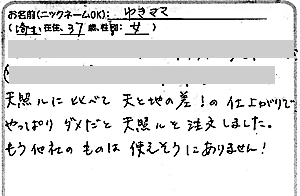 お名前(ニックネームOK): ゆきママ
(埼玉在住、37歳、性別: 女)
天照ルに比べて天と地の差!の仕上がりで
やっぱりダメだと天照ルを注文しました。
もう他社のものは使えそうにありません!